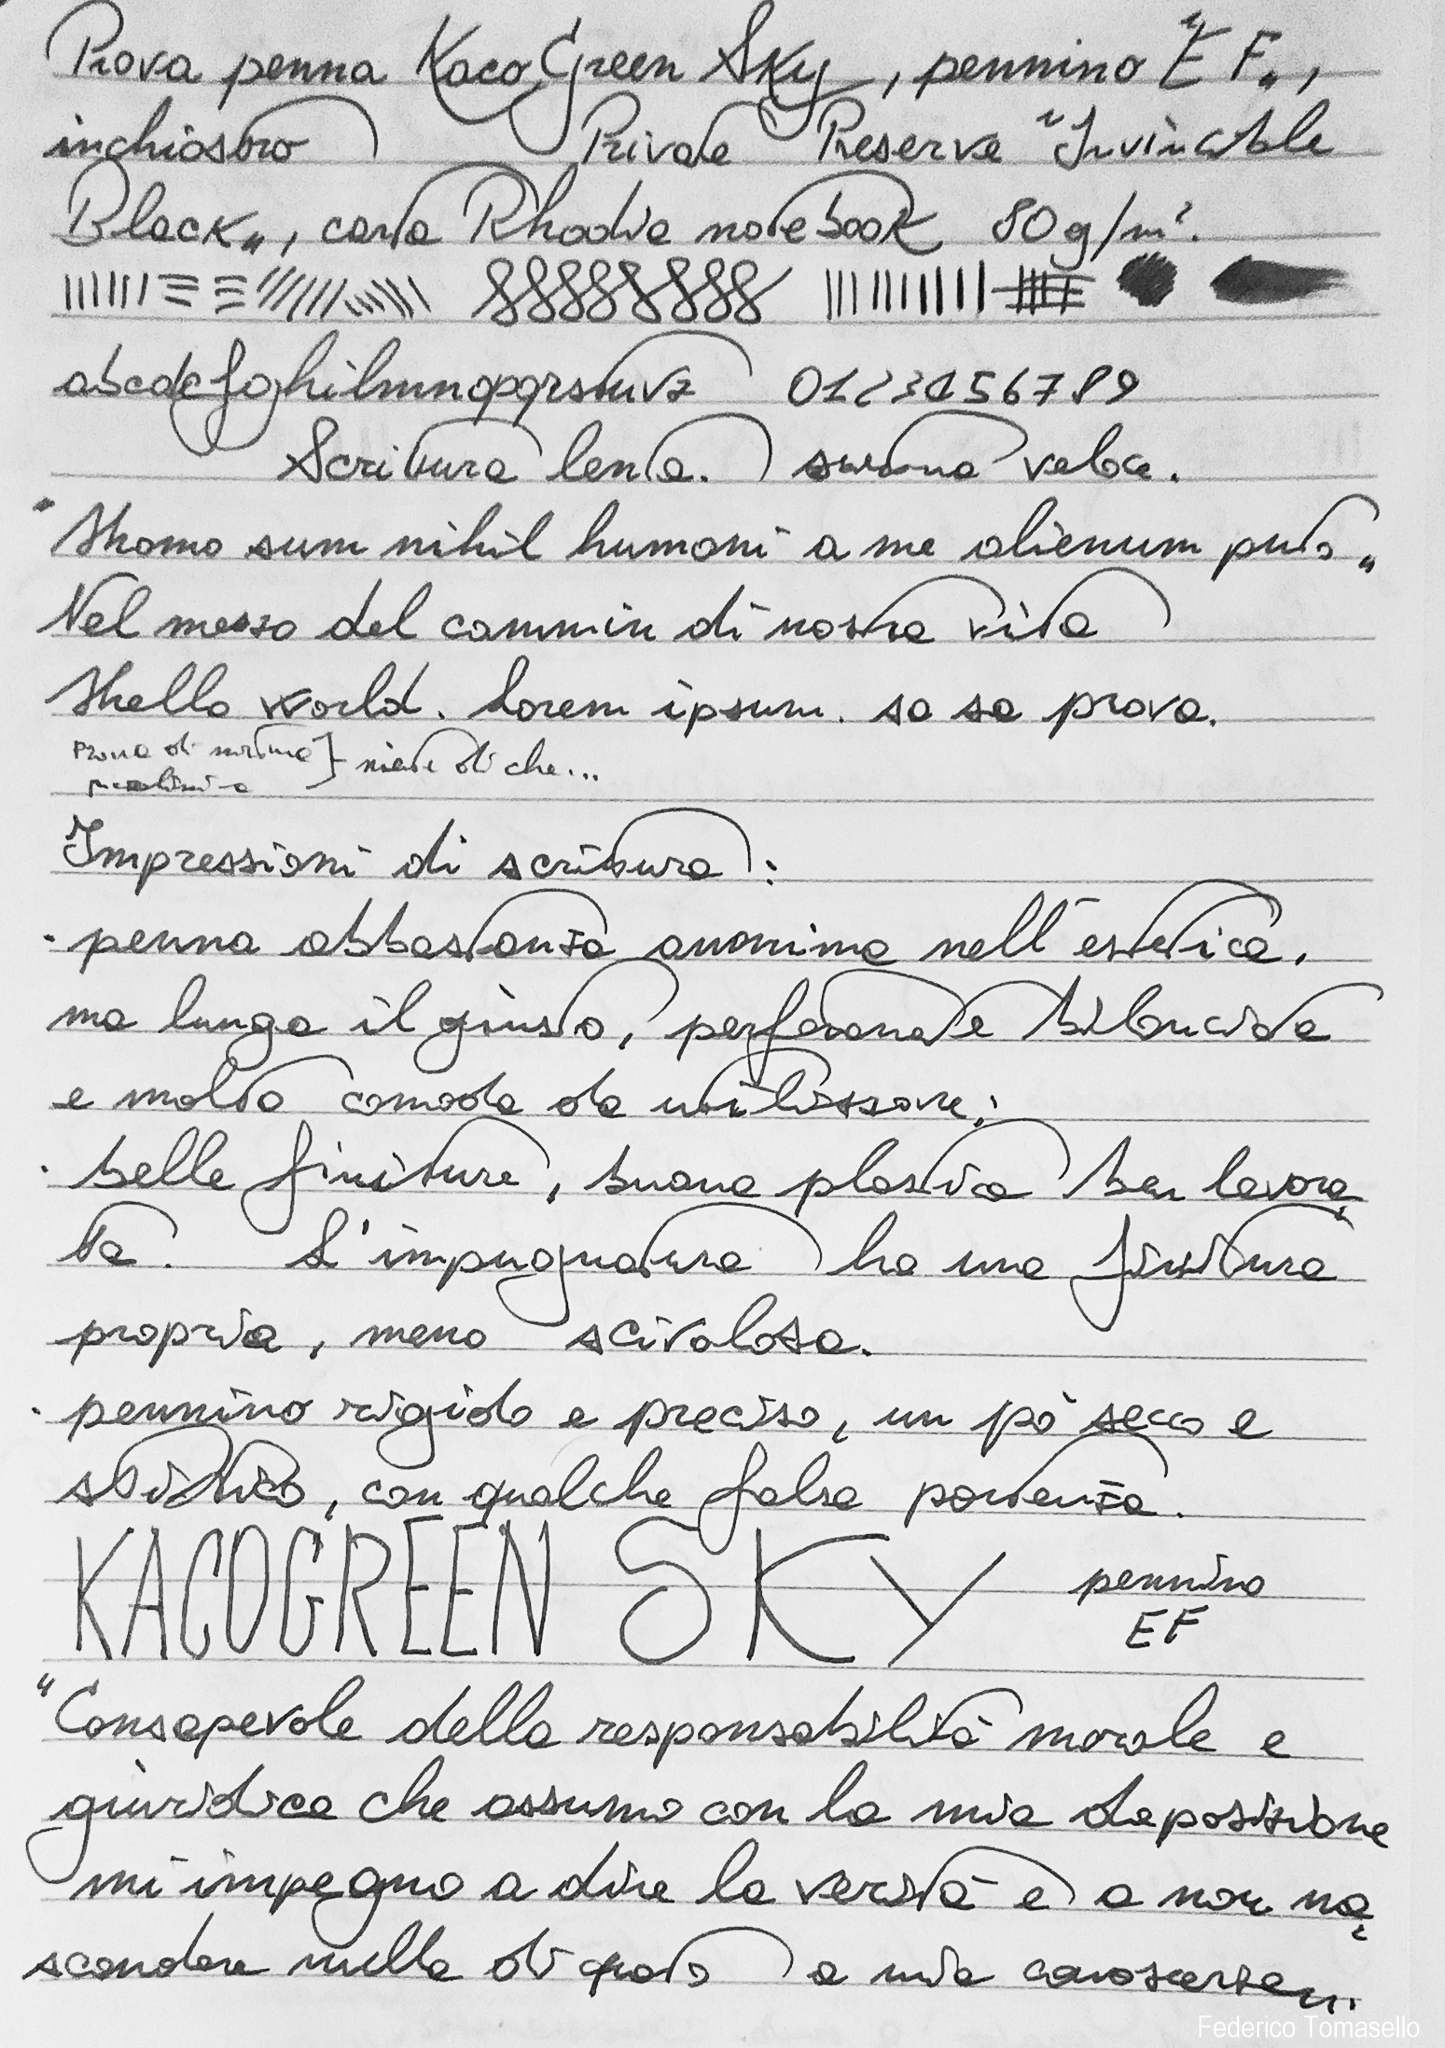 Prova penna KacoGreen Sky, pennino "EF",
inchiostro Private Reserve "Invincible
Black", carta Rhodia notebook 80 g/m².
abcdefghilmnopqrstuvz 0123456789
Scrittura lenta. scrittura veloce.
"Homo sum nihil humani a me alienum puto"
Nel mezzo del cammin di nostra vita
Hello world. Lorem ipsum. sa sa prova.
Prova di scrittura
piccolissima } niente di che...
Impressioni di scrittura:
· penna abbastanza anonima nell'estetica,
ma lunga il giusto, perfettamente bilanciata
e molto comoda da utilizzare;
· belle finiture, buona plastica ben lavora
ta. L'impugnatura ha una finitura
propria, meno scivolosa.
· pennino rigido e preciso, un pò secco e
stitico, con qualche falsa partenza.
KACOGREEN SKY pennino
EF
"Consapevole della responsabilità morale e
giuridica che assumo con la mia deposizione
mi impegno a dire la verità e a non na
scondere nulla di quanto a mia conoscenza".
Federico Tomasello